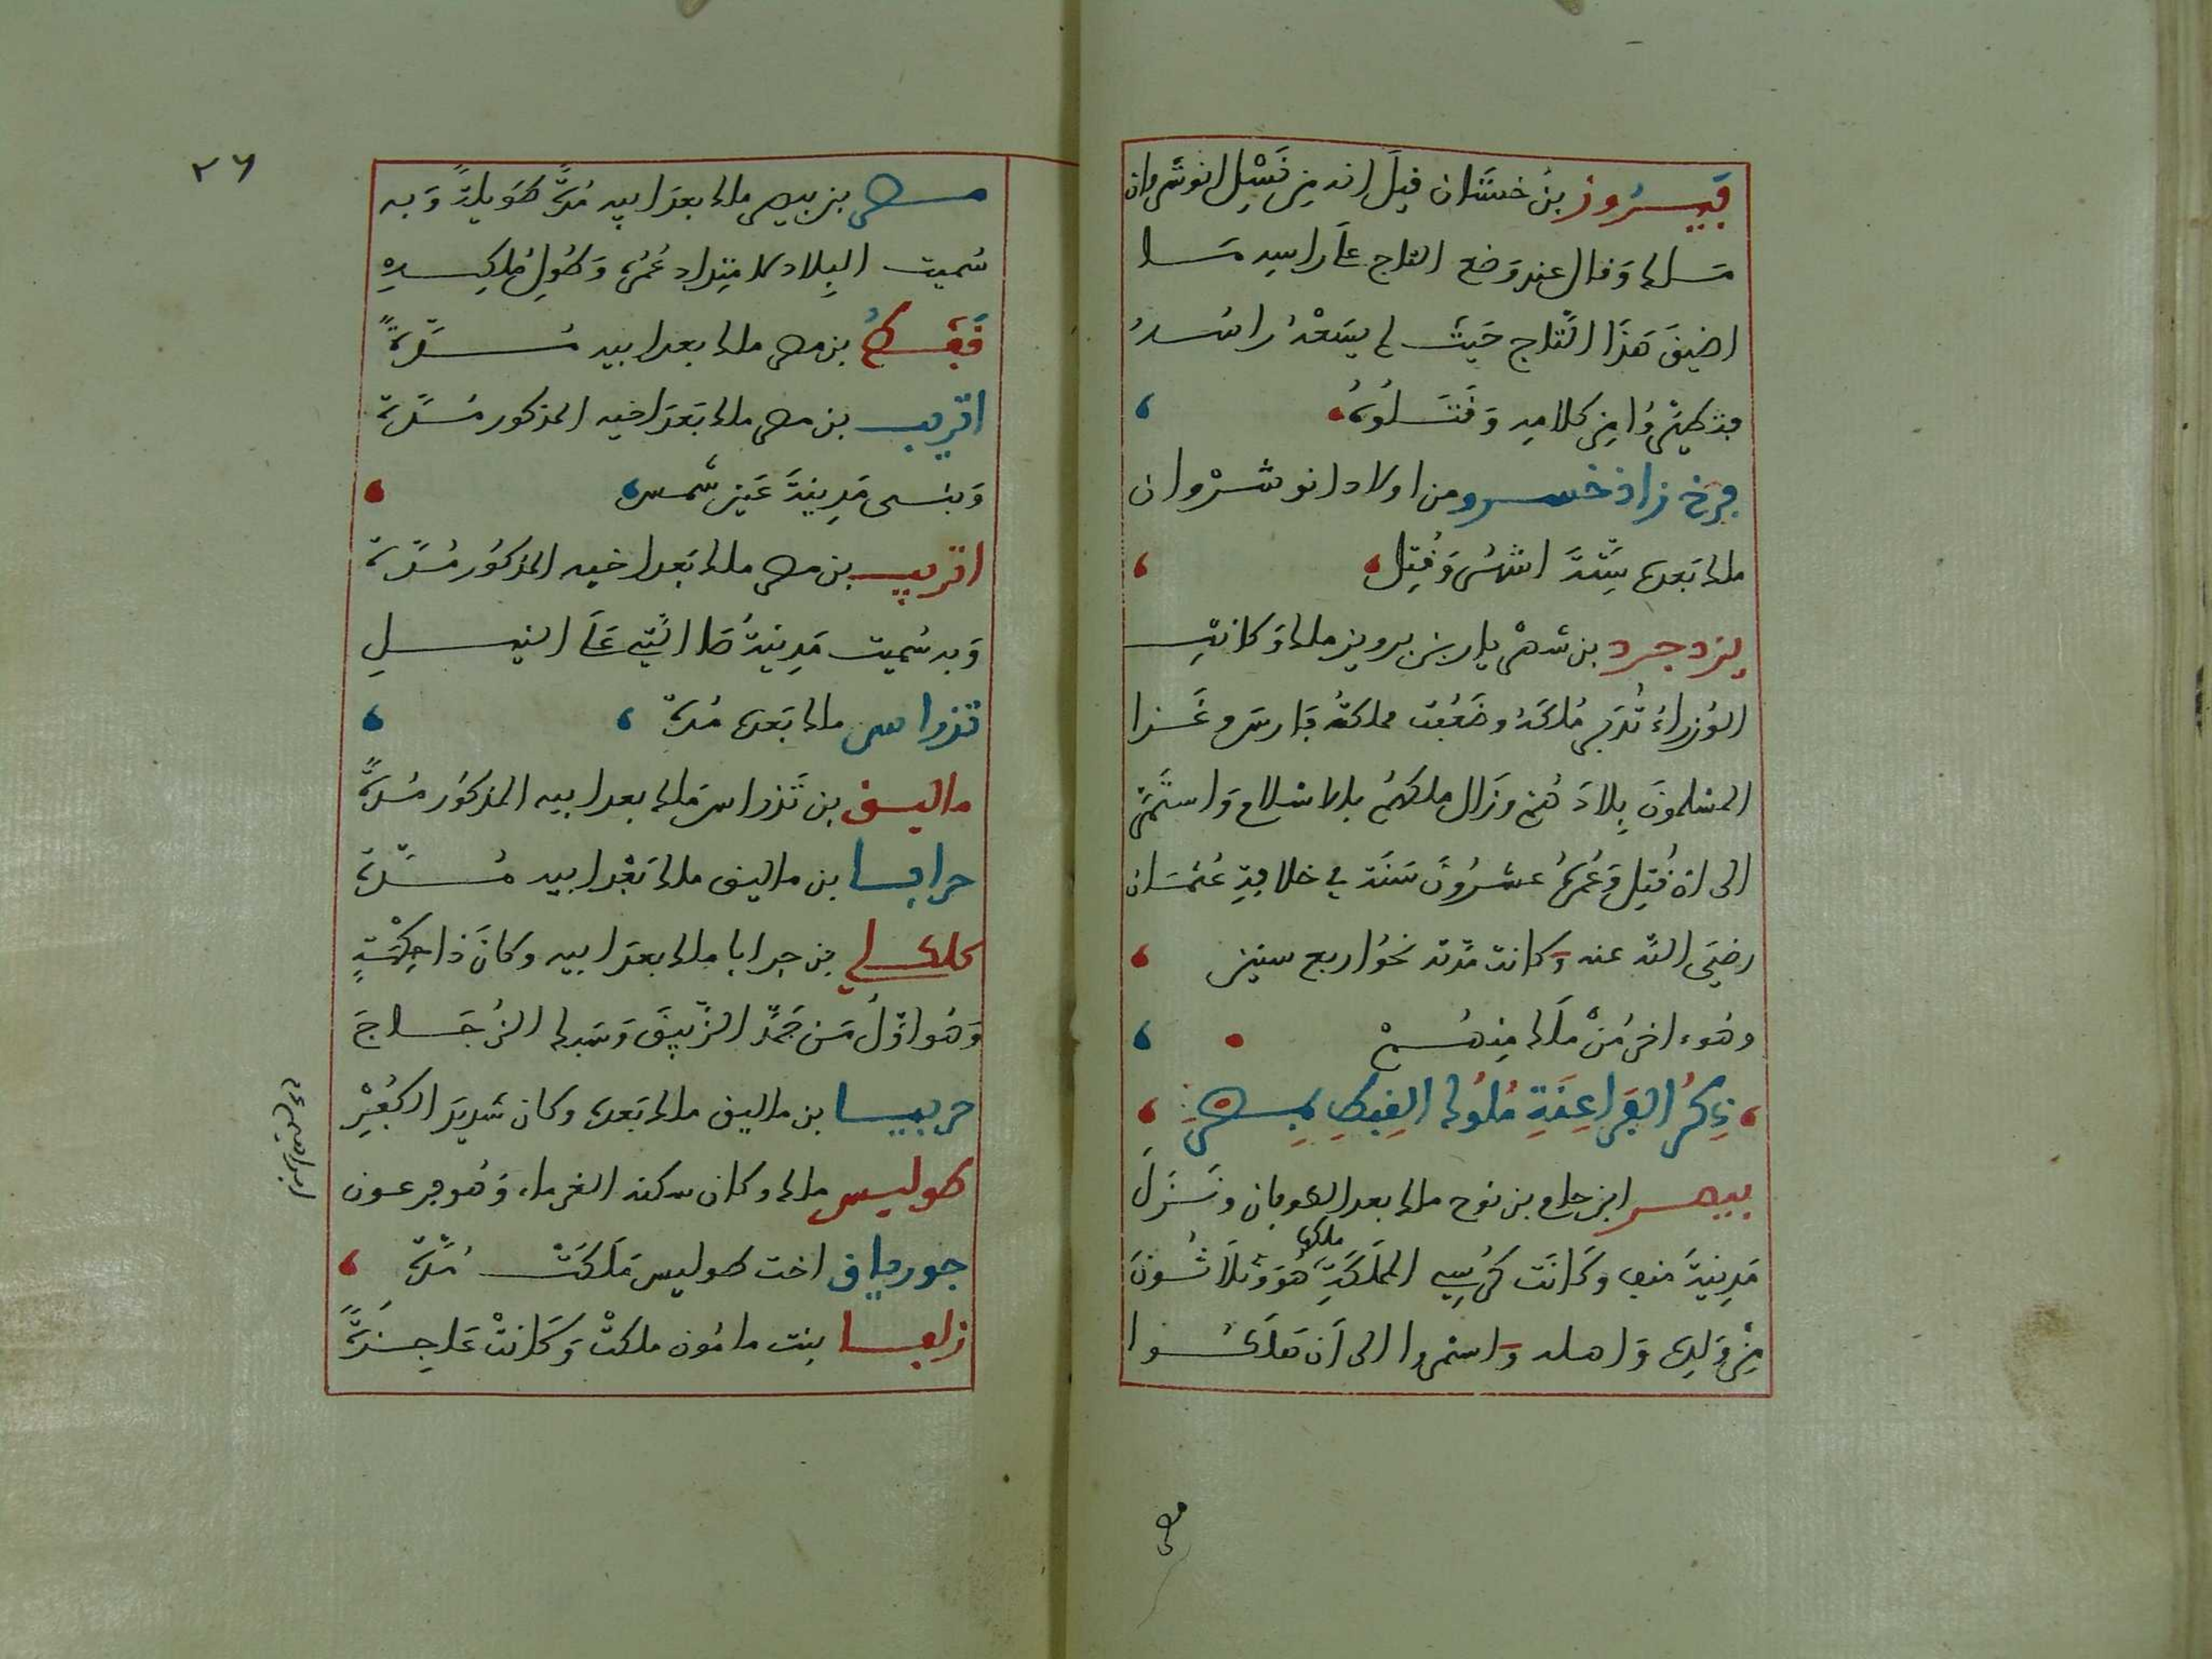 فيروز بن خشنان قيل انه من نسل انوشروان
ملك وقال عند وضع التاج على راسه ما
اضيق هذا التاج حيث لم يسعه راسه
فتطيروا من كلامه وقتلوه
فرخ زاد خسرو من اولاد انوشروان
ملك بعده ستة اشهر وقتل
يزدجرد بن شهريار بن برويز ملك وكانت
الوزراء تدبر ملكه وضعفت مملكة فارس وغزا
المسلمون بلادهم وزال ملكهم بالاسلام واستمر
الى ان قتل وعمره عشرون سنة في خلافة عثمان
رضي الله عنه وكانت مدته نحو اربع سنين
وهو اخر من ملك منهم
ذكر الفراعنة ملوك القبط بمصر
بيصر ابن حام بن نوح ملك بعد الطوفان ونزل
مدينة منف وكانت كرسي المملكة ملكها هو وثلاثون
من ولده واهله واستمروا الى ان هلكوا
مصر
٢٦
مصر بن بيصر ملك بعد ابيه مدة طويلة وبه
سميت البلاد لامتداد عمره وطول ملكه
قفط بن مصر ملك بعد ابيه مدة
اتريب بن مصر ملك بعد اخيه المذكور مدة
وبنى مدينة عين شمس
اتريب بن مصر ملك بعد اخيه المذكور مدة
وبه سميت مدينة صا التي على النيل
تدراس ملك بعده مدة
ماليق بن تدراس ملك بعد ابيه المذكور مدة
حرابا بن ماليق ملك بعد ابيه مدة
كلكلي بن حرابا ملك بعد ابيه وكان ذا حكمة
وهو اول من جمد الزيبق وسبك الزجاج
حربيا بن ماليق ملك بعده وكان شديد الكفر
طوليس ملك وكان سكنه الفرما، وهو فرعون
ابراهيم
جورياق اخت طوليس ملكت مدة
زلفا بنت مامون ملكت وكانت عاجزة